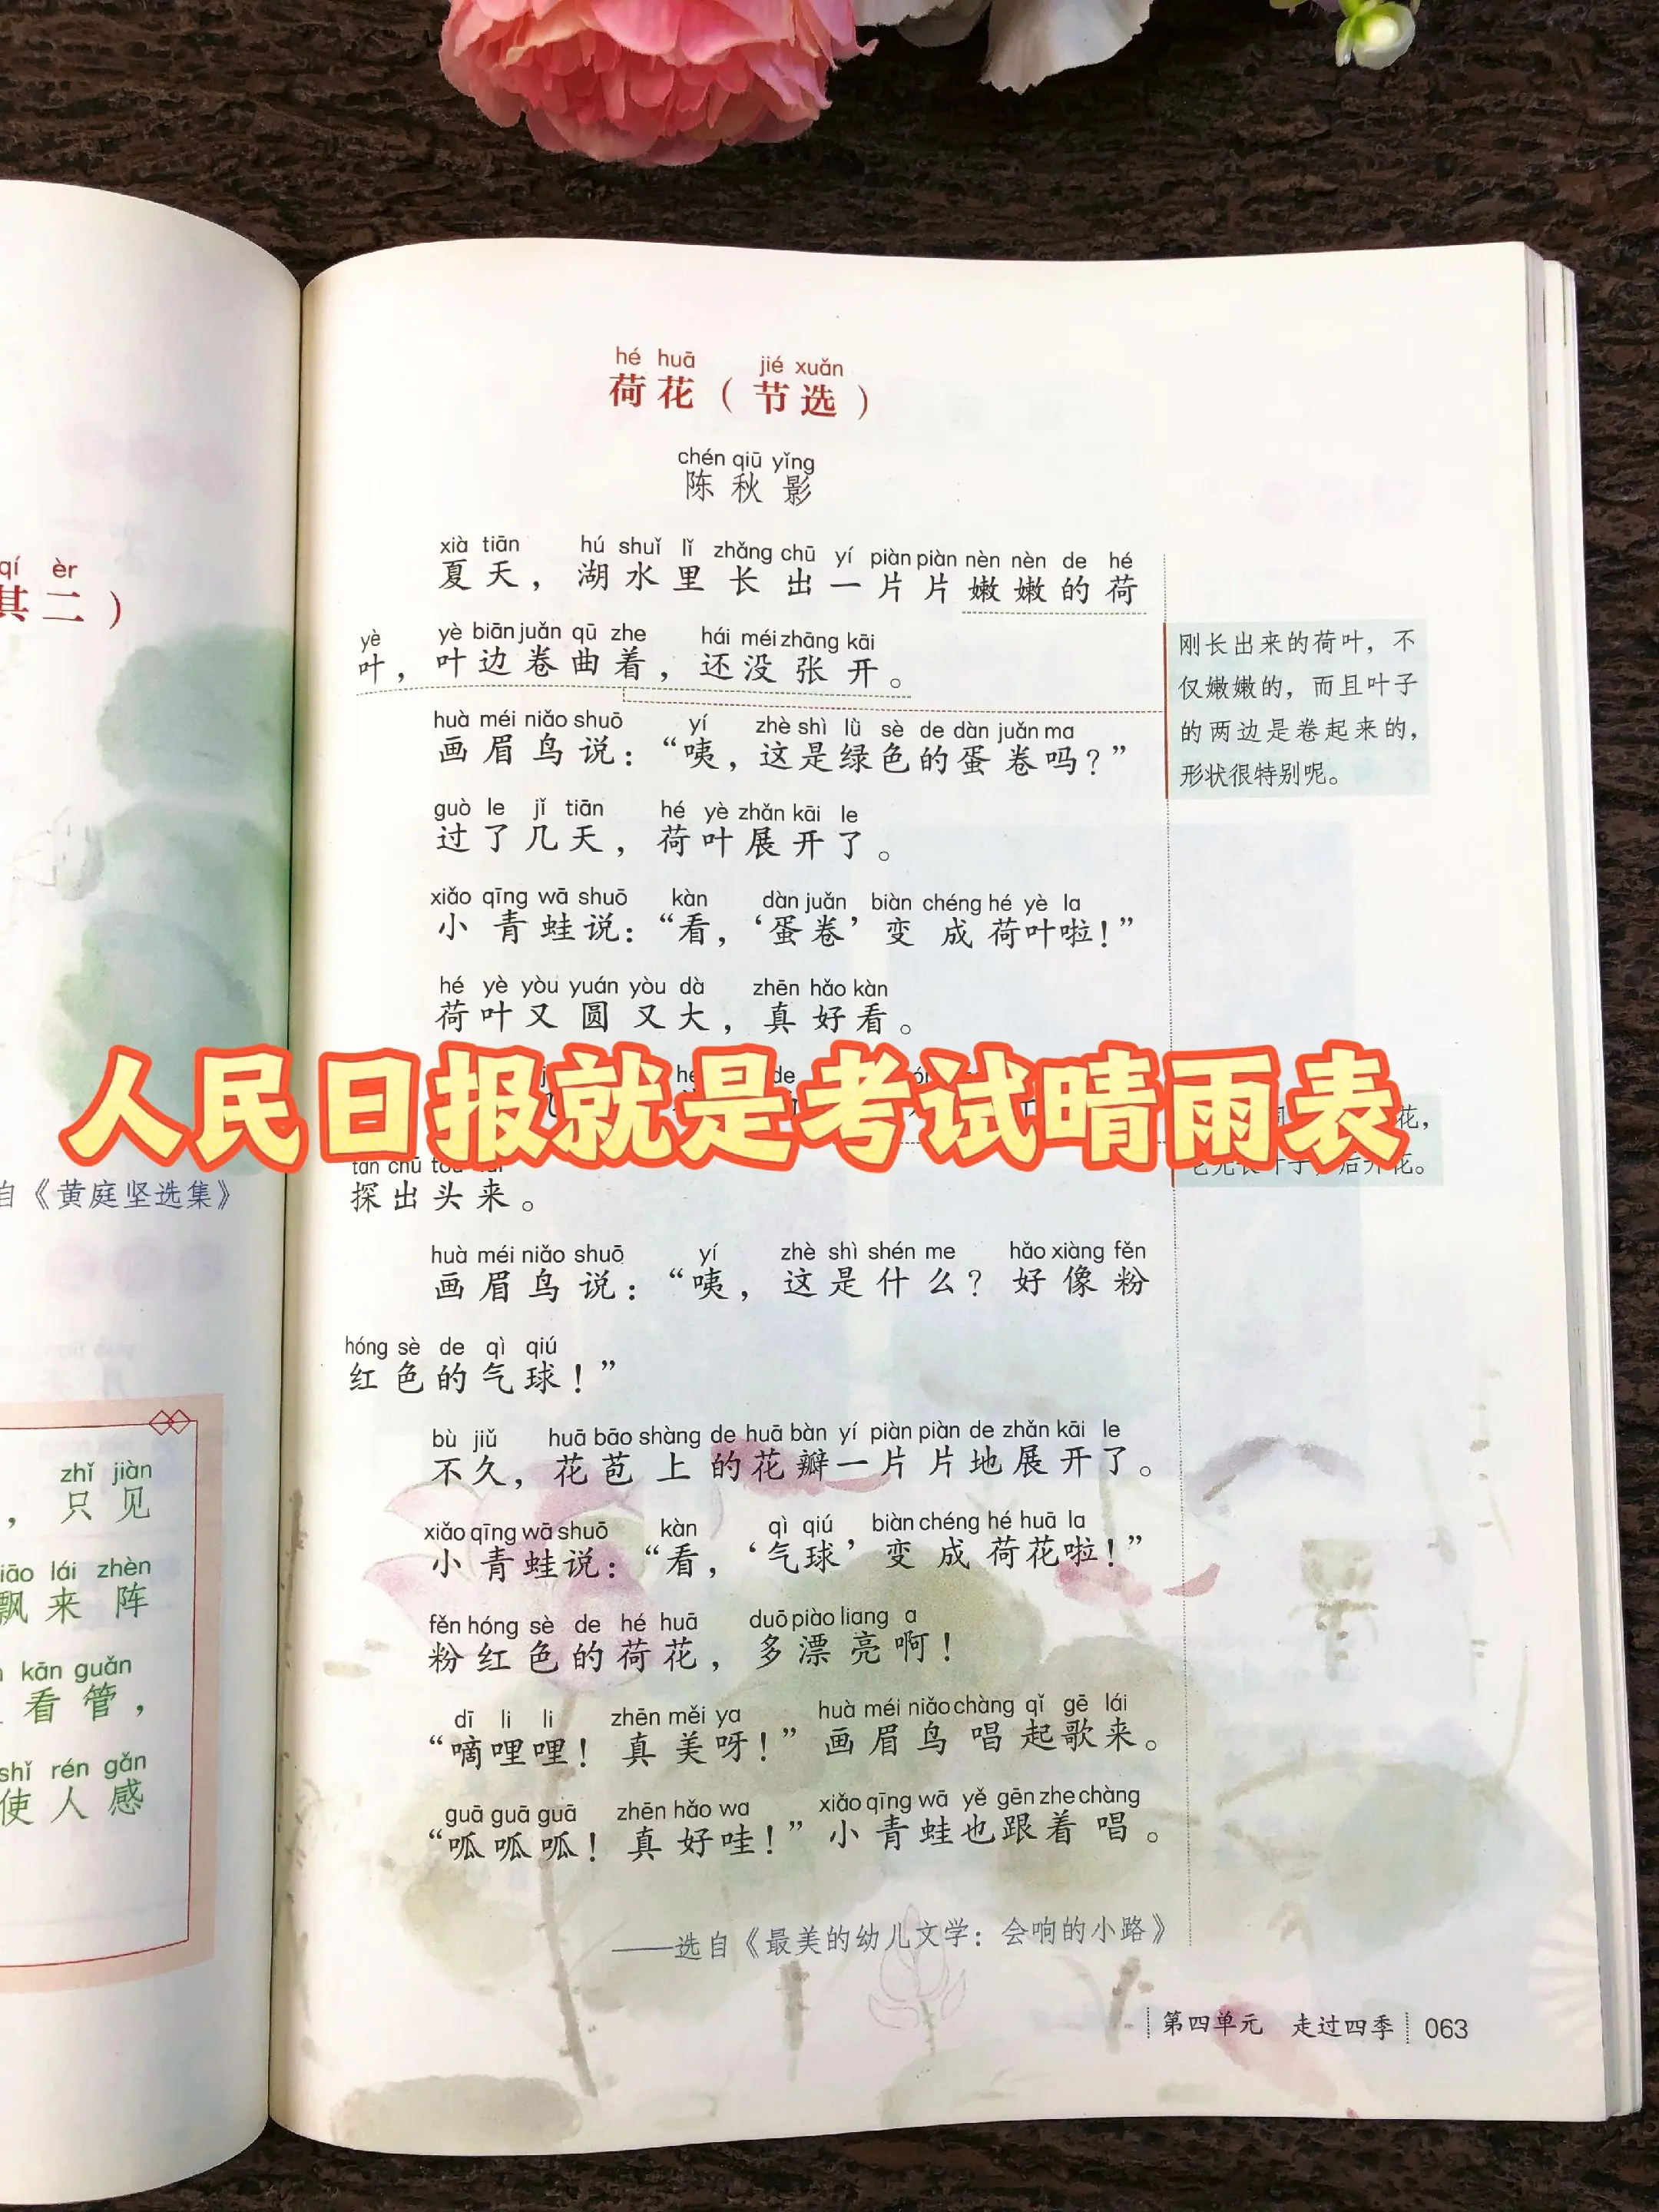 qí èr
其二）
自《黄庭坚选集》
zhǐ jiàn
，只见
lái zhèn
飘来阵
kān guǎn
看管，
shǐ rén gǎn
使人感
hé huā jié xuǎn
荷花（节选）
chén qiū yǐng
陈秋影
xià tiān hú shuǐ lǐ zhǎng chū yí piàn piàn nèn nèn de hé
夏天，湖水里长出一片片嫩嫩的荷
yè yè biān juǎn qū zhe hái méi zhāng kāi
叶，叶边卷曲着，还没张开。
huà méi niǎo shuō yí zhè shì lǜ sè de dàn juǎn ma
画眉鸟说：“咦，这是绿色的蛋卷吗？”
guò le jǐ tiān hé yè zhǎn kāi le
过了几天，荷叶展开了。
xiǎo qīng wā shuō kàn dàn juǎn biàn chéng hé yè la
小青蛙说：“看，‘蛋卷’变成荷叶啦！”
hé yè yòu yuán yòu dà zhēn hǎo kàn
荷叶又圆又大，真好看。
人民日报就是考试晴雨表
探出头来。
huà méi niǎo shuō yí zhè shì shén me hǎo xiàng fěn
画眉鸟说：“咦，这是什么？好像粉
hóng sè de qì qiú
红色的气球！”
bù jiǔ huā bāo shàng de huā bàn yí piàn piàn de zhǎn kāi le
不久，花苞上的花瓣一片片地展开了。
xiǎo qīng wā shuō kàn qì qiú biàn chéng hé huā la
小青蛙说：“看，‘气球’变成荷花啦！”
fěn hóng sè de hé huā duō piào liang a
粉红色的荷花，多漂亮啊！
dī li li zhēn měi ya huà méi niǎo chàng qǐ gē lái
“嘀哩哩！真美呀！”画眉鸟唱起歌来。
guā guā guā zhēn hǎo wa xiǎo qīng wā yě gēn zhe chàng
“呱呱呱！真好哇！”小青蛙也跟着唱。
——选自《最美的幼儿文学：会响的小路》
刚长出来的荷叶，不
仅嫩嫩的，而且叶子
的两边是卷起来的，
形状很特别呢。
花，
后开花。
第四单元 走过四季 063